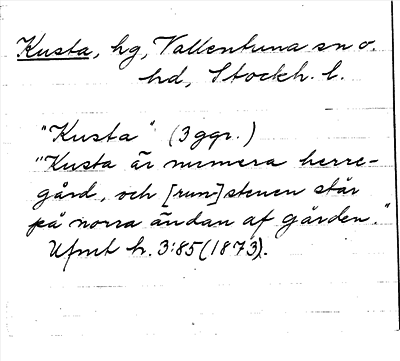 Kusta, hg, Vallentuna sn o.
hd, Stockh. l.
"Kusta" (3 ggr.)
"Kusta är numera herre-
gård, och [run-]stenen står
på norra ändan af gården."
Ufmt h. 3:85 (1873).